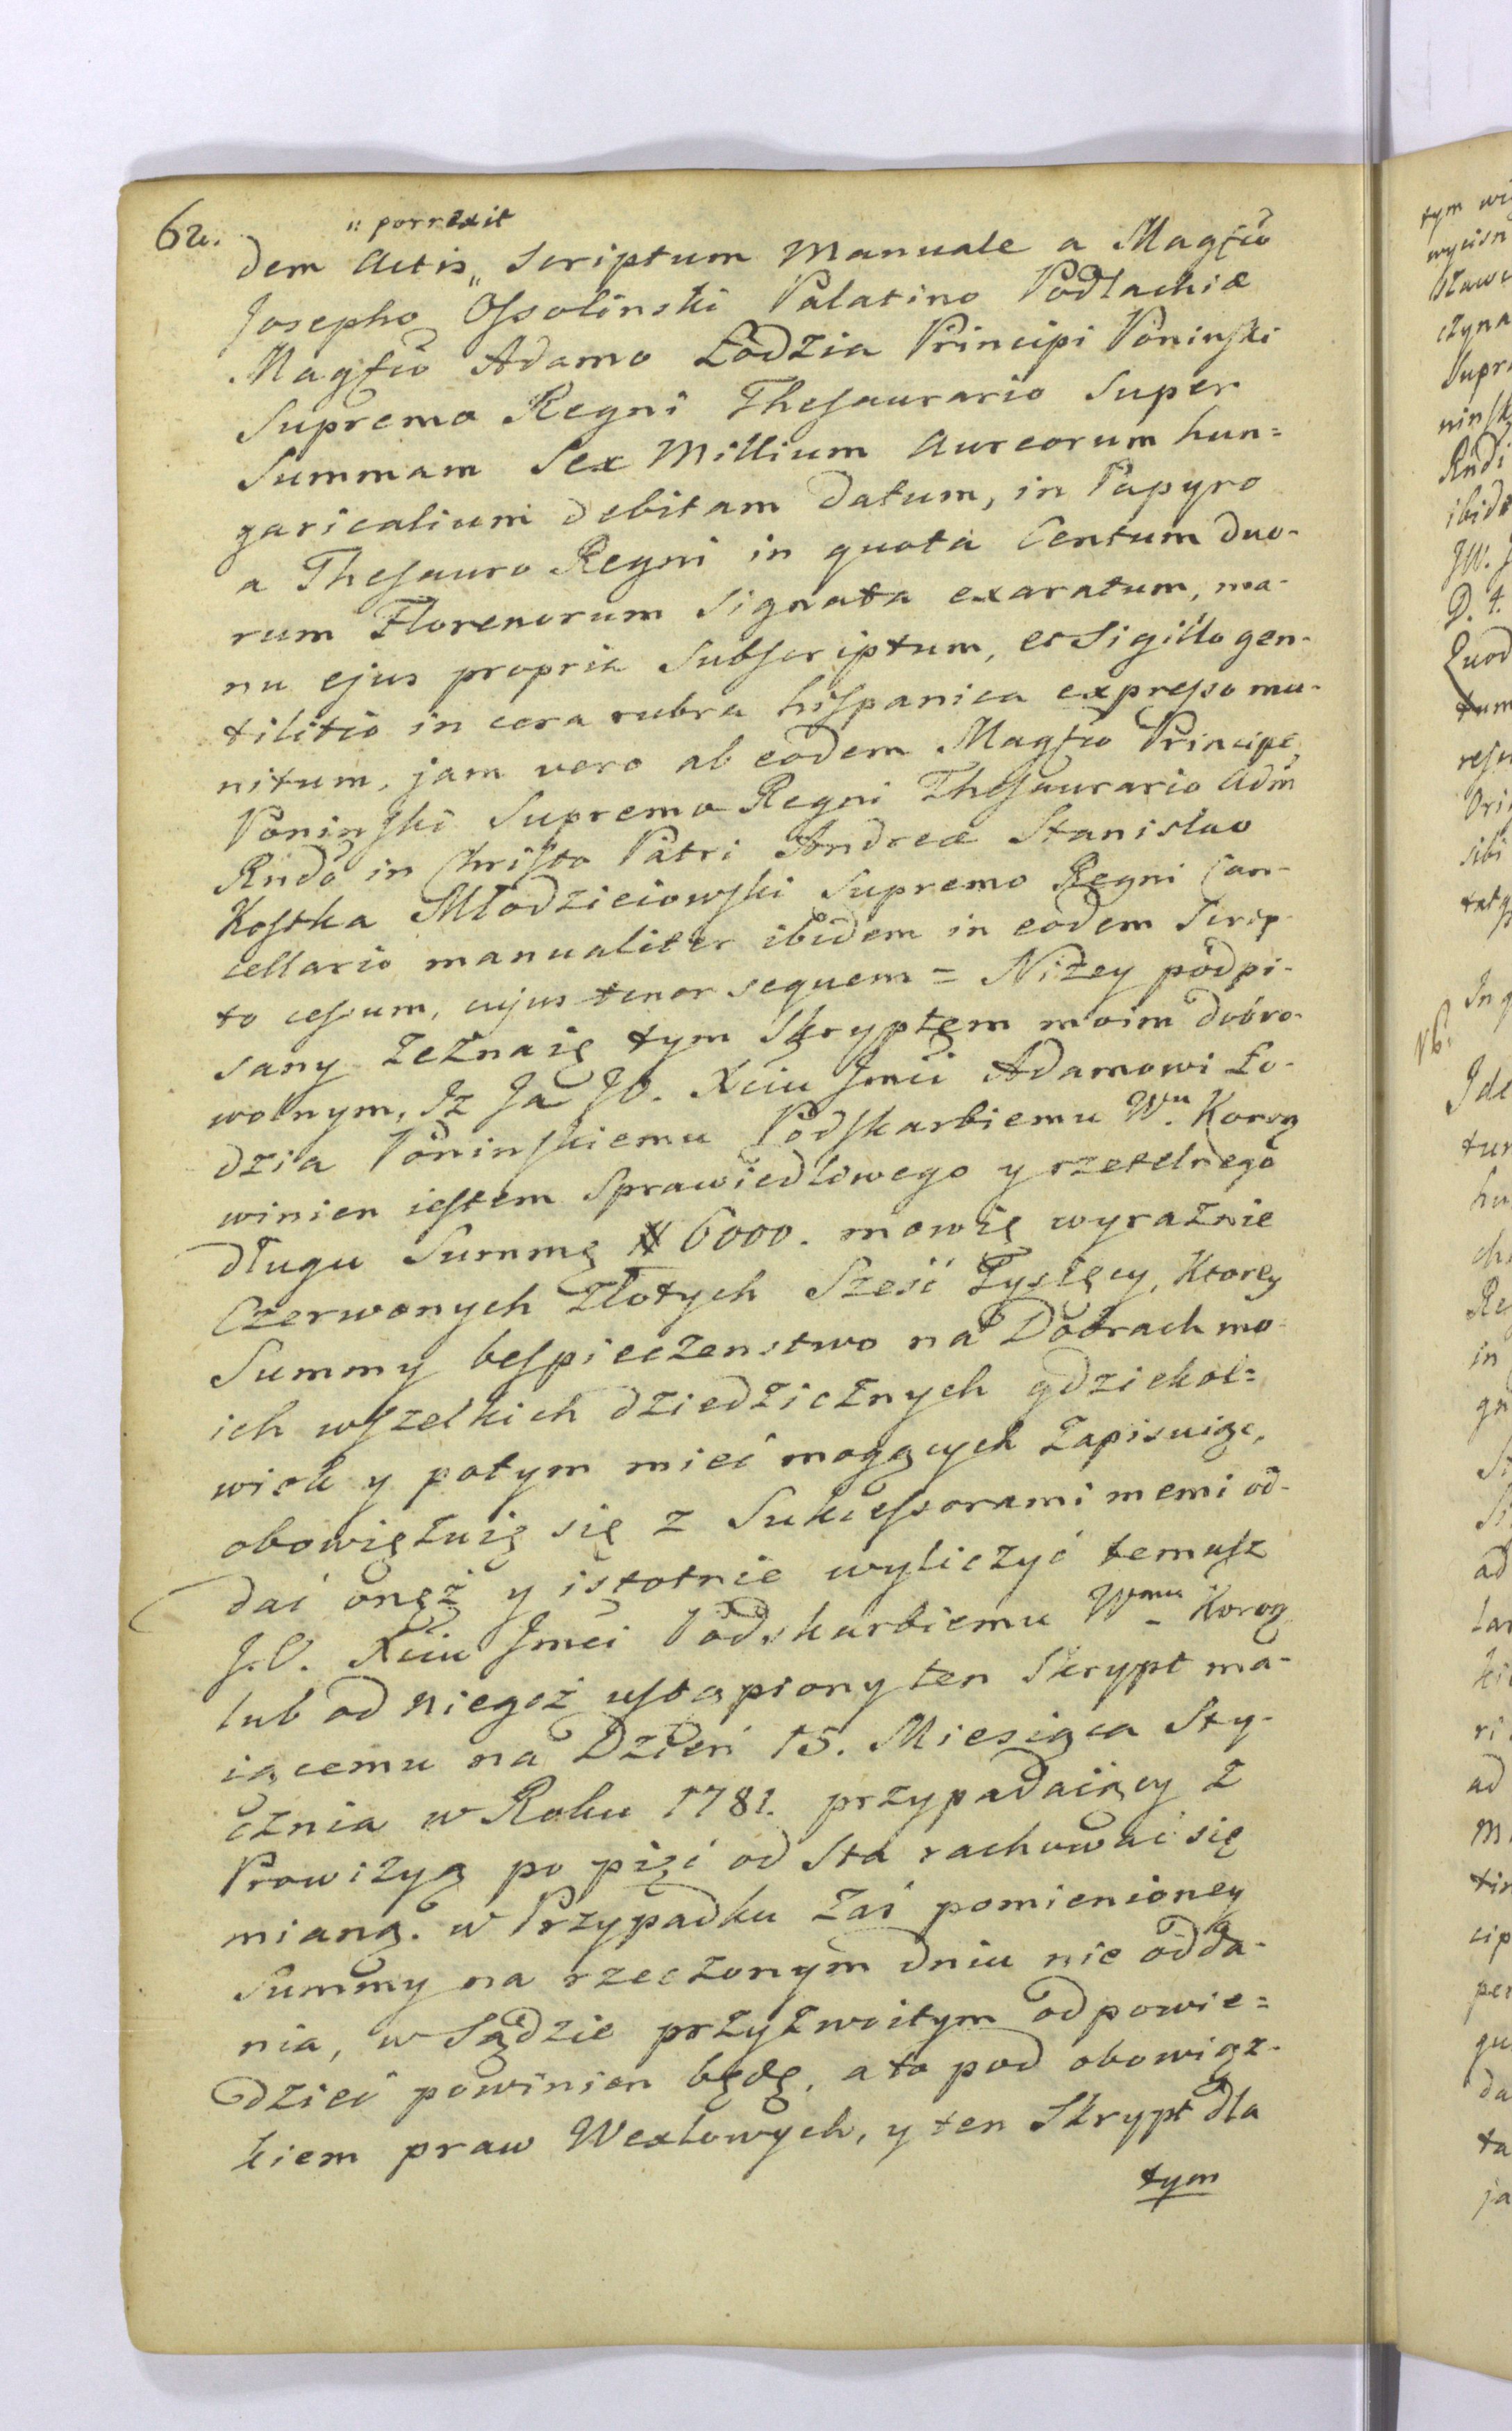 62.
„ porrexit
dem Actis „ Scriptum Manuale a Magfco
Josepho Ossolinski Palatino Podlachiæ
Magfco Adamo Łodzia Principi Poninski
Supremo Regni Thesaurario Super
Summam Sex Millium Aureorum hun=
garicalium debitam datum, in Papyro
a Thesauro Regni in quota Centum duo-
rum Florenorum Signata exaratum, ma-
nu ejus propria Subscriptum, et Sigillo gen-
tilitio in cera rubra hispanica expresso mu-
nitum, jam vero ab eodem Magfco Principe
Poninski Supremo Regni Thesaurario Adm
Rndo in Christo Patri Andreæ Stanislao
Kostka Młodzieiowski Supremo Regni Can-
cellario manualiter ibidem in eodem Scrip-
to cessum, cujus tenor sequem = Niżey podpi-
sany Zeznaię tym Skryptem moim dobro-
wolnym, Iż Ja JO. Xciu Jmci Adamowi Ło-
dzia Poninskiemu Podskarbiemu Wu. Koron
winien iestem Sprawiedliwego y rzetelnego
długu Summę # 6000. mowię wyraznie
Czerwonych Złotych Sześć Tysięcy, Ktorey
Summy bespieczenstwo na Dobrach mo-
ich wszelkich dziedzicznych gdziekol=
wiek y potym mieć mogących Zapisuiąc,
obowięzuię się z Sukcessorami memi od-
dać onęż y istotnie wyliczyć temusz
J.O. Xciu Jmci Podskarbiemu Wmu Koron
lub od niegoż ustąpiony ten Skrypt ma-
iącemu na Dzień 15. Miesiąca Sty-
cznia w Roku 1781. przypadaiący z
Prowizyą po pięć od Sta rachować się
mianą. w Przypadku Zaś pomienioney
Summy na rzeczonym dniu nie odda-
nia, w Sądzie przyzwoitym odpowie=
dzieć powinien będę, a to pod obowiąz-
kiem praw Wexlowych, y ten Skrypt dla
tym